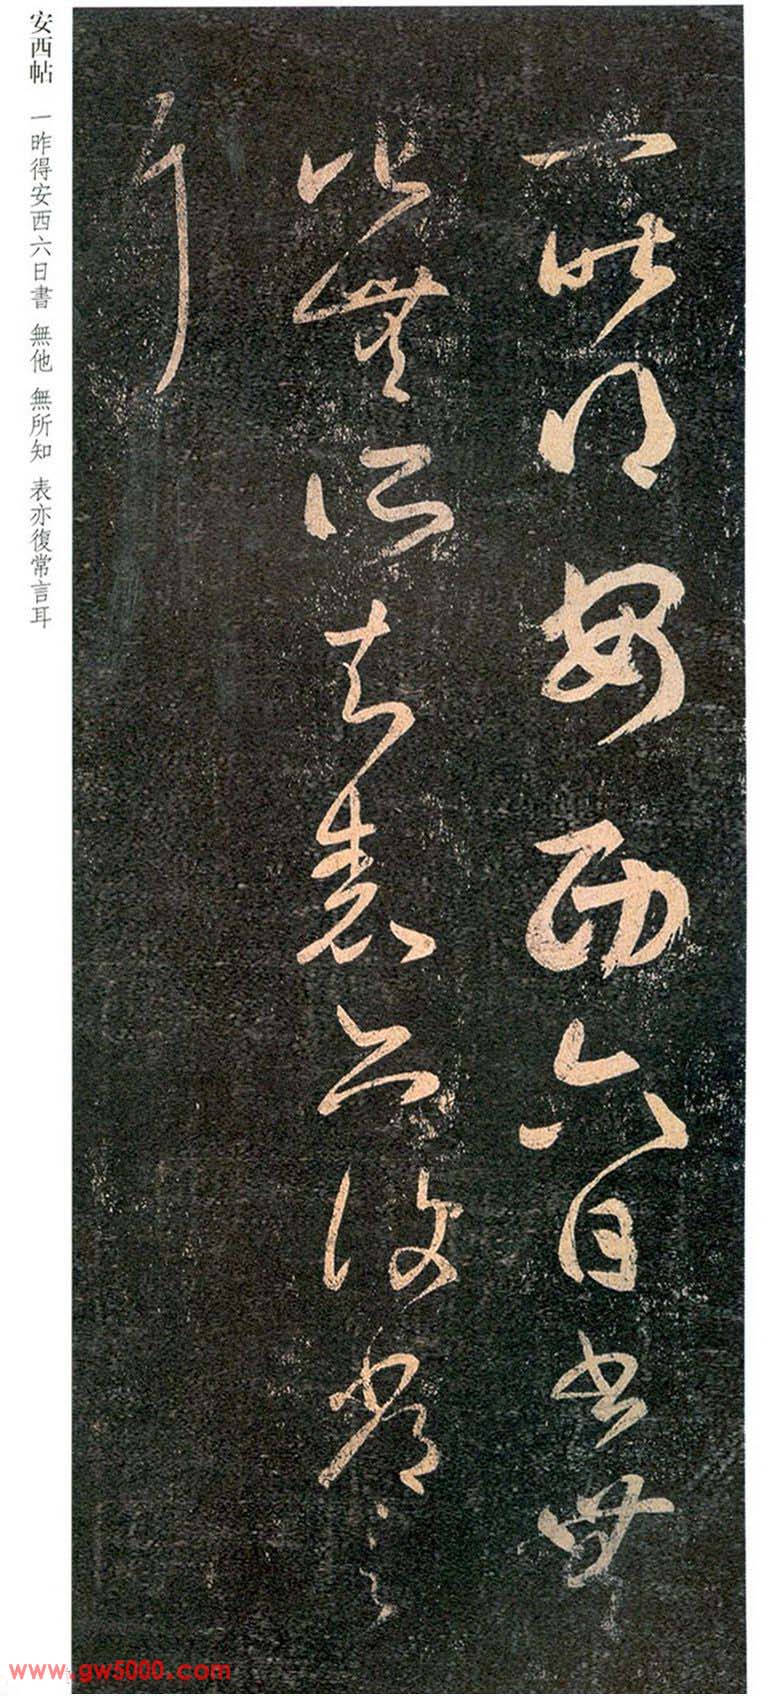 一昨得安西六日書無
他無所知表亦復常言
耳
安西帖 一昨得安西六日書 無他 無所知 表亦復常言耳
www.gw5000.com